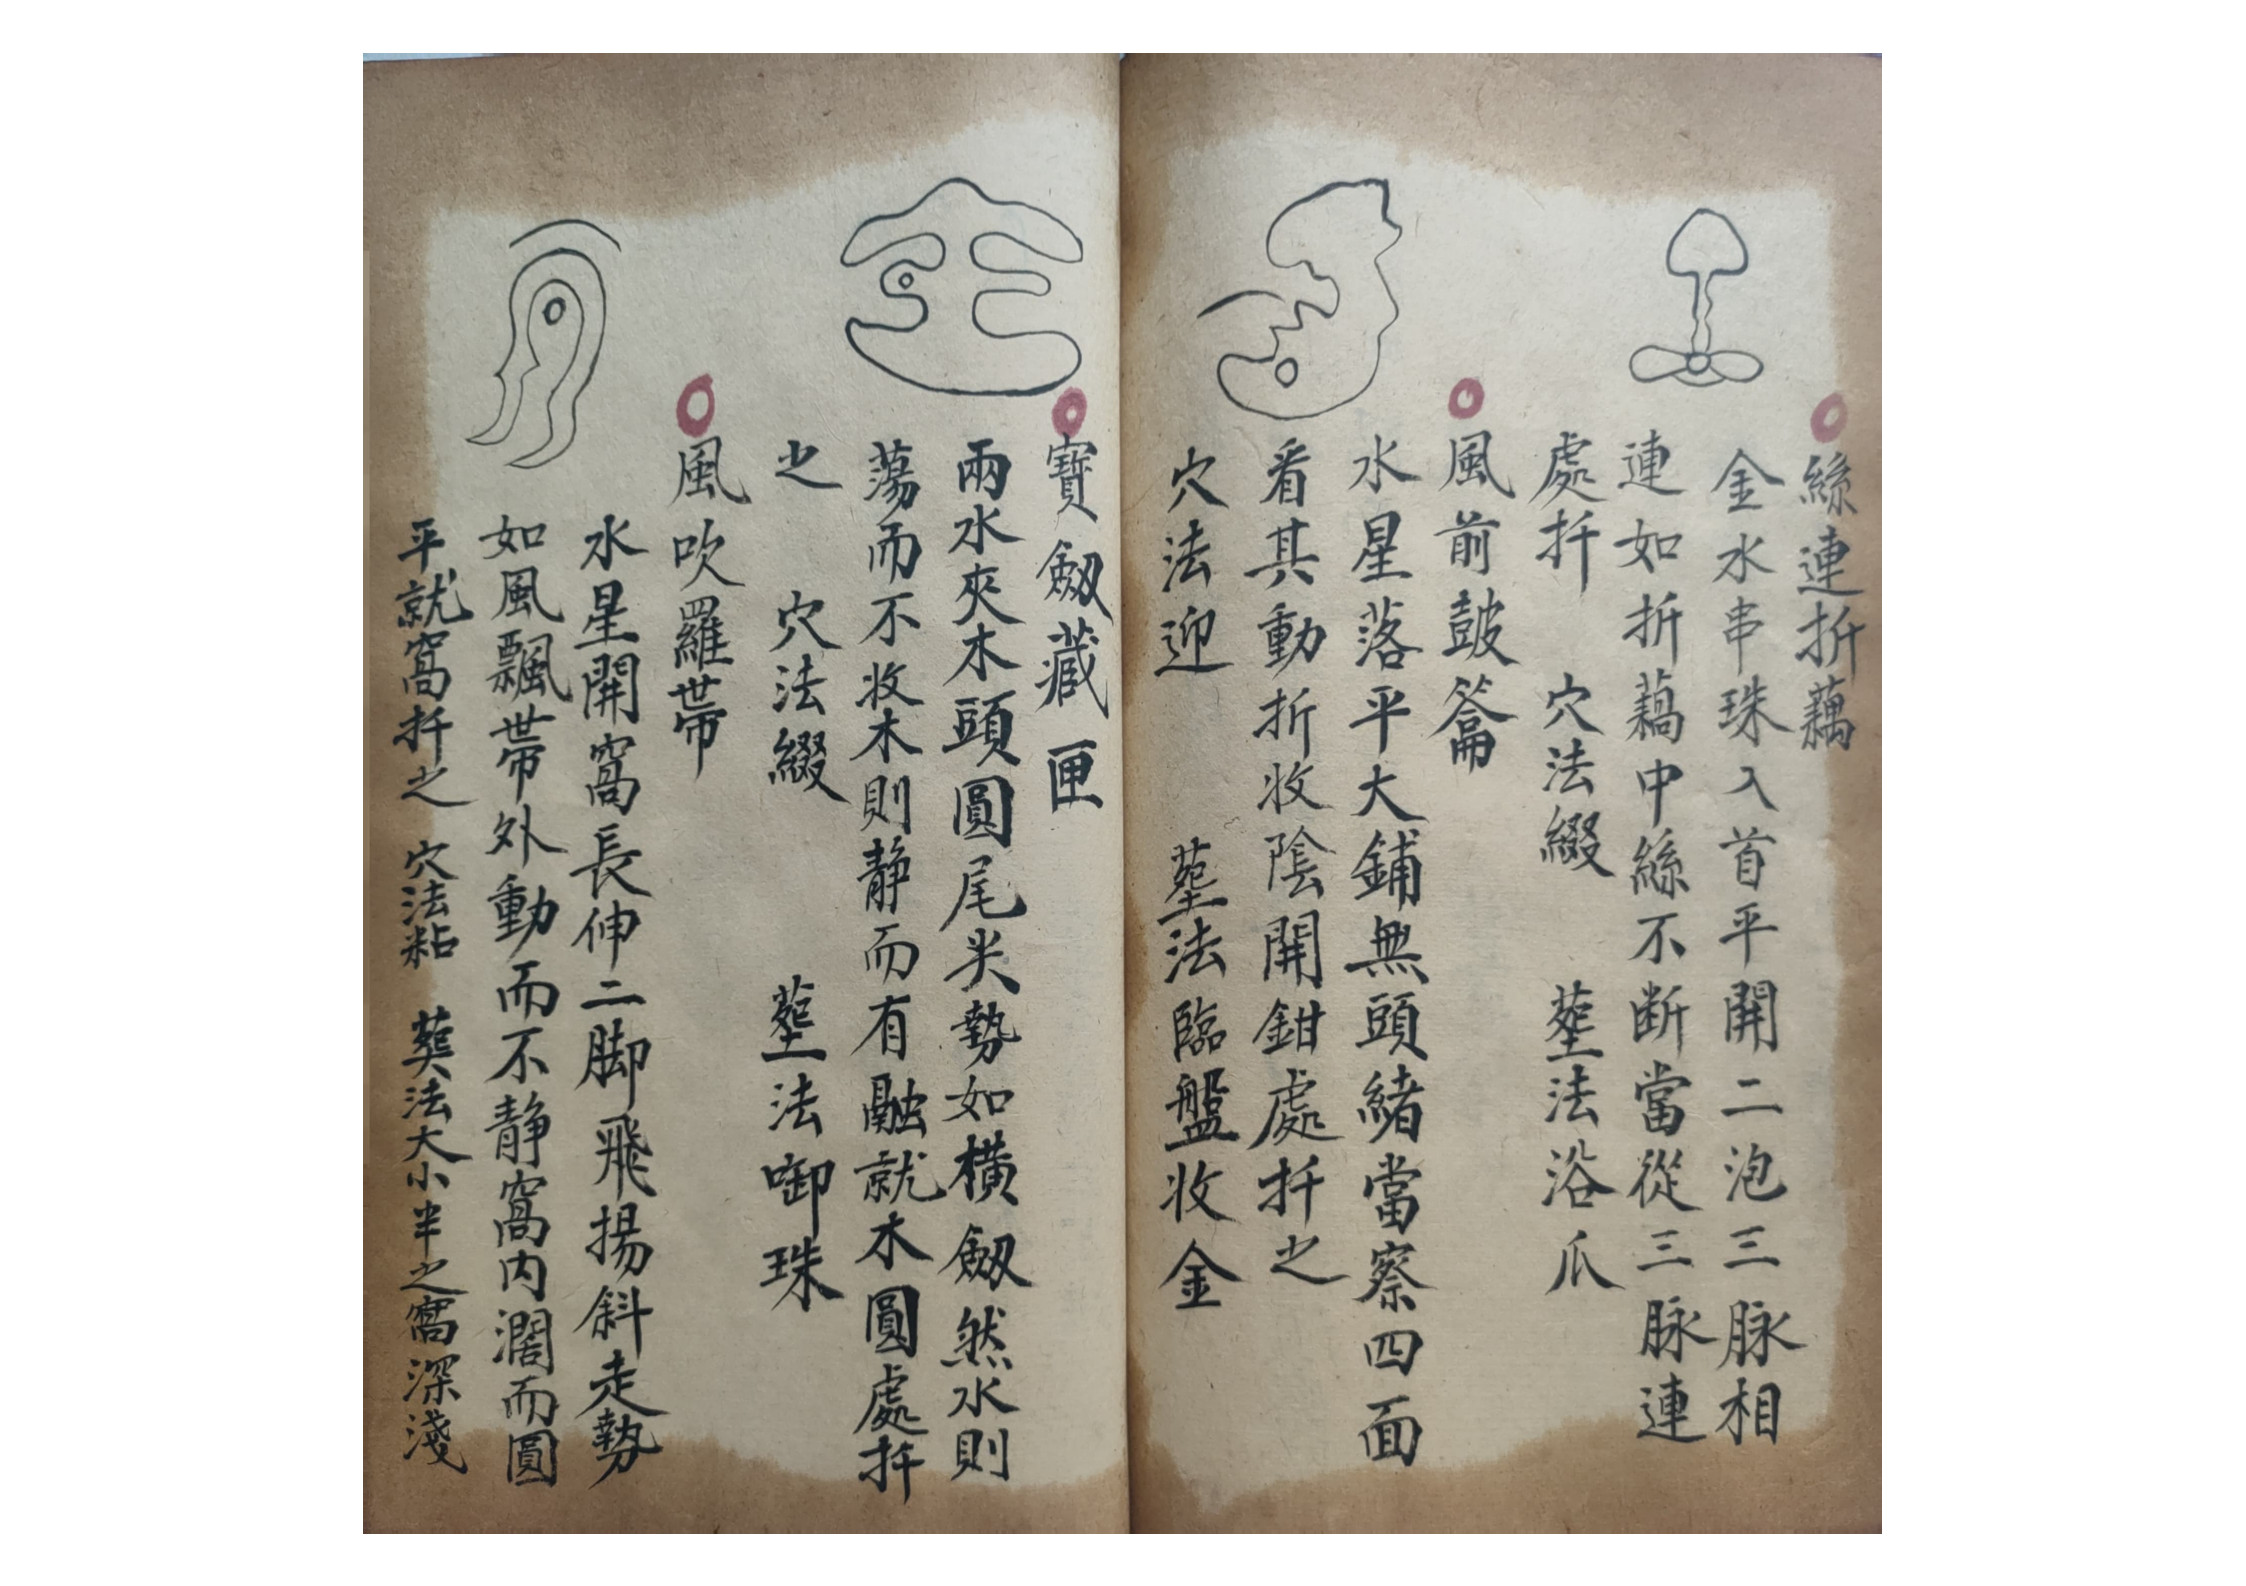 絲連折藕
金水串珠入首平開二泡三脉相
連如折藕中絲不断當從三脉連
處扦 穴法綴 塟法浴爪
風前鼓龠
水星落平大鋪無頭緒當察四面
看其動折收陰開鉗處扦之
穴法迎 塟法臨盤收金
寶劔蔵匣
兩水夾木頭圓尾尖勢如橫劔然水則
蕩而不收木則静而有融就木圓處扦
之 穴法綴 塟法啣珠
風吹羅帶
水星開窩長伸二脚飛揚斜走勢
如風飄帶外動而不静窩内濶而圓
平就窩扦之 穴法粘 葬法大小半之窩深淺